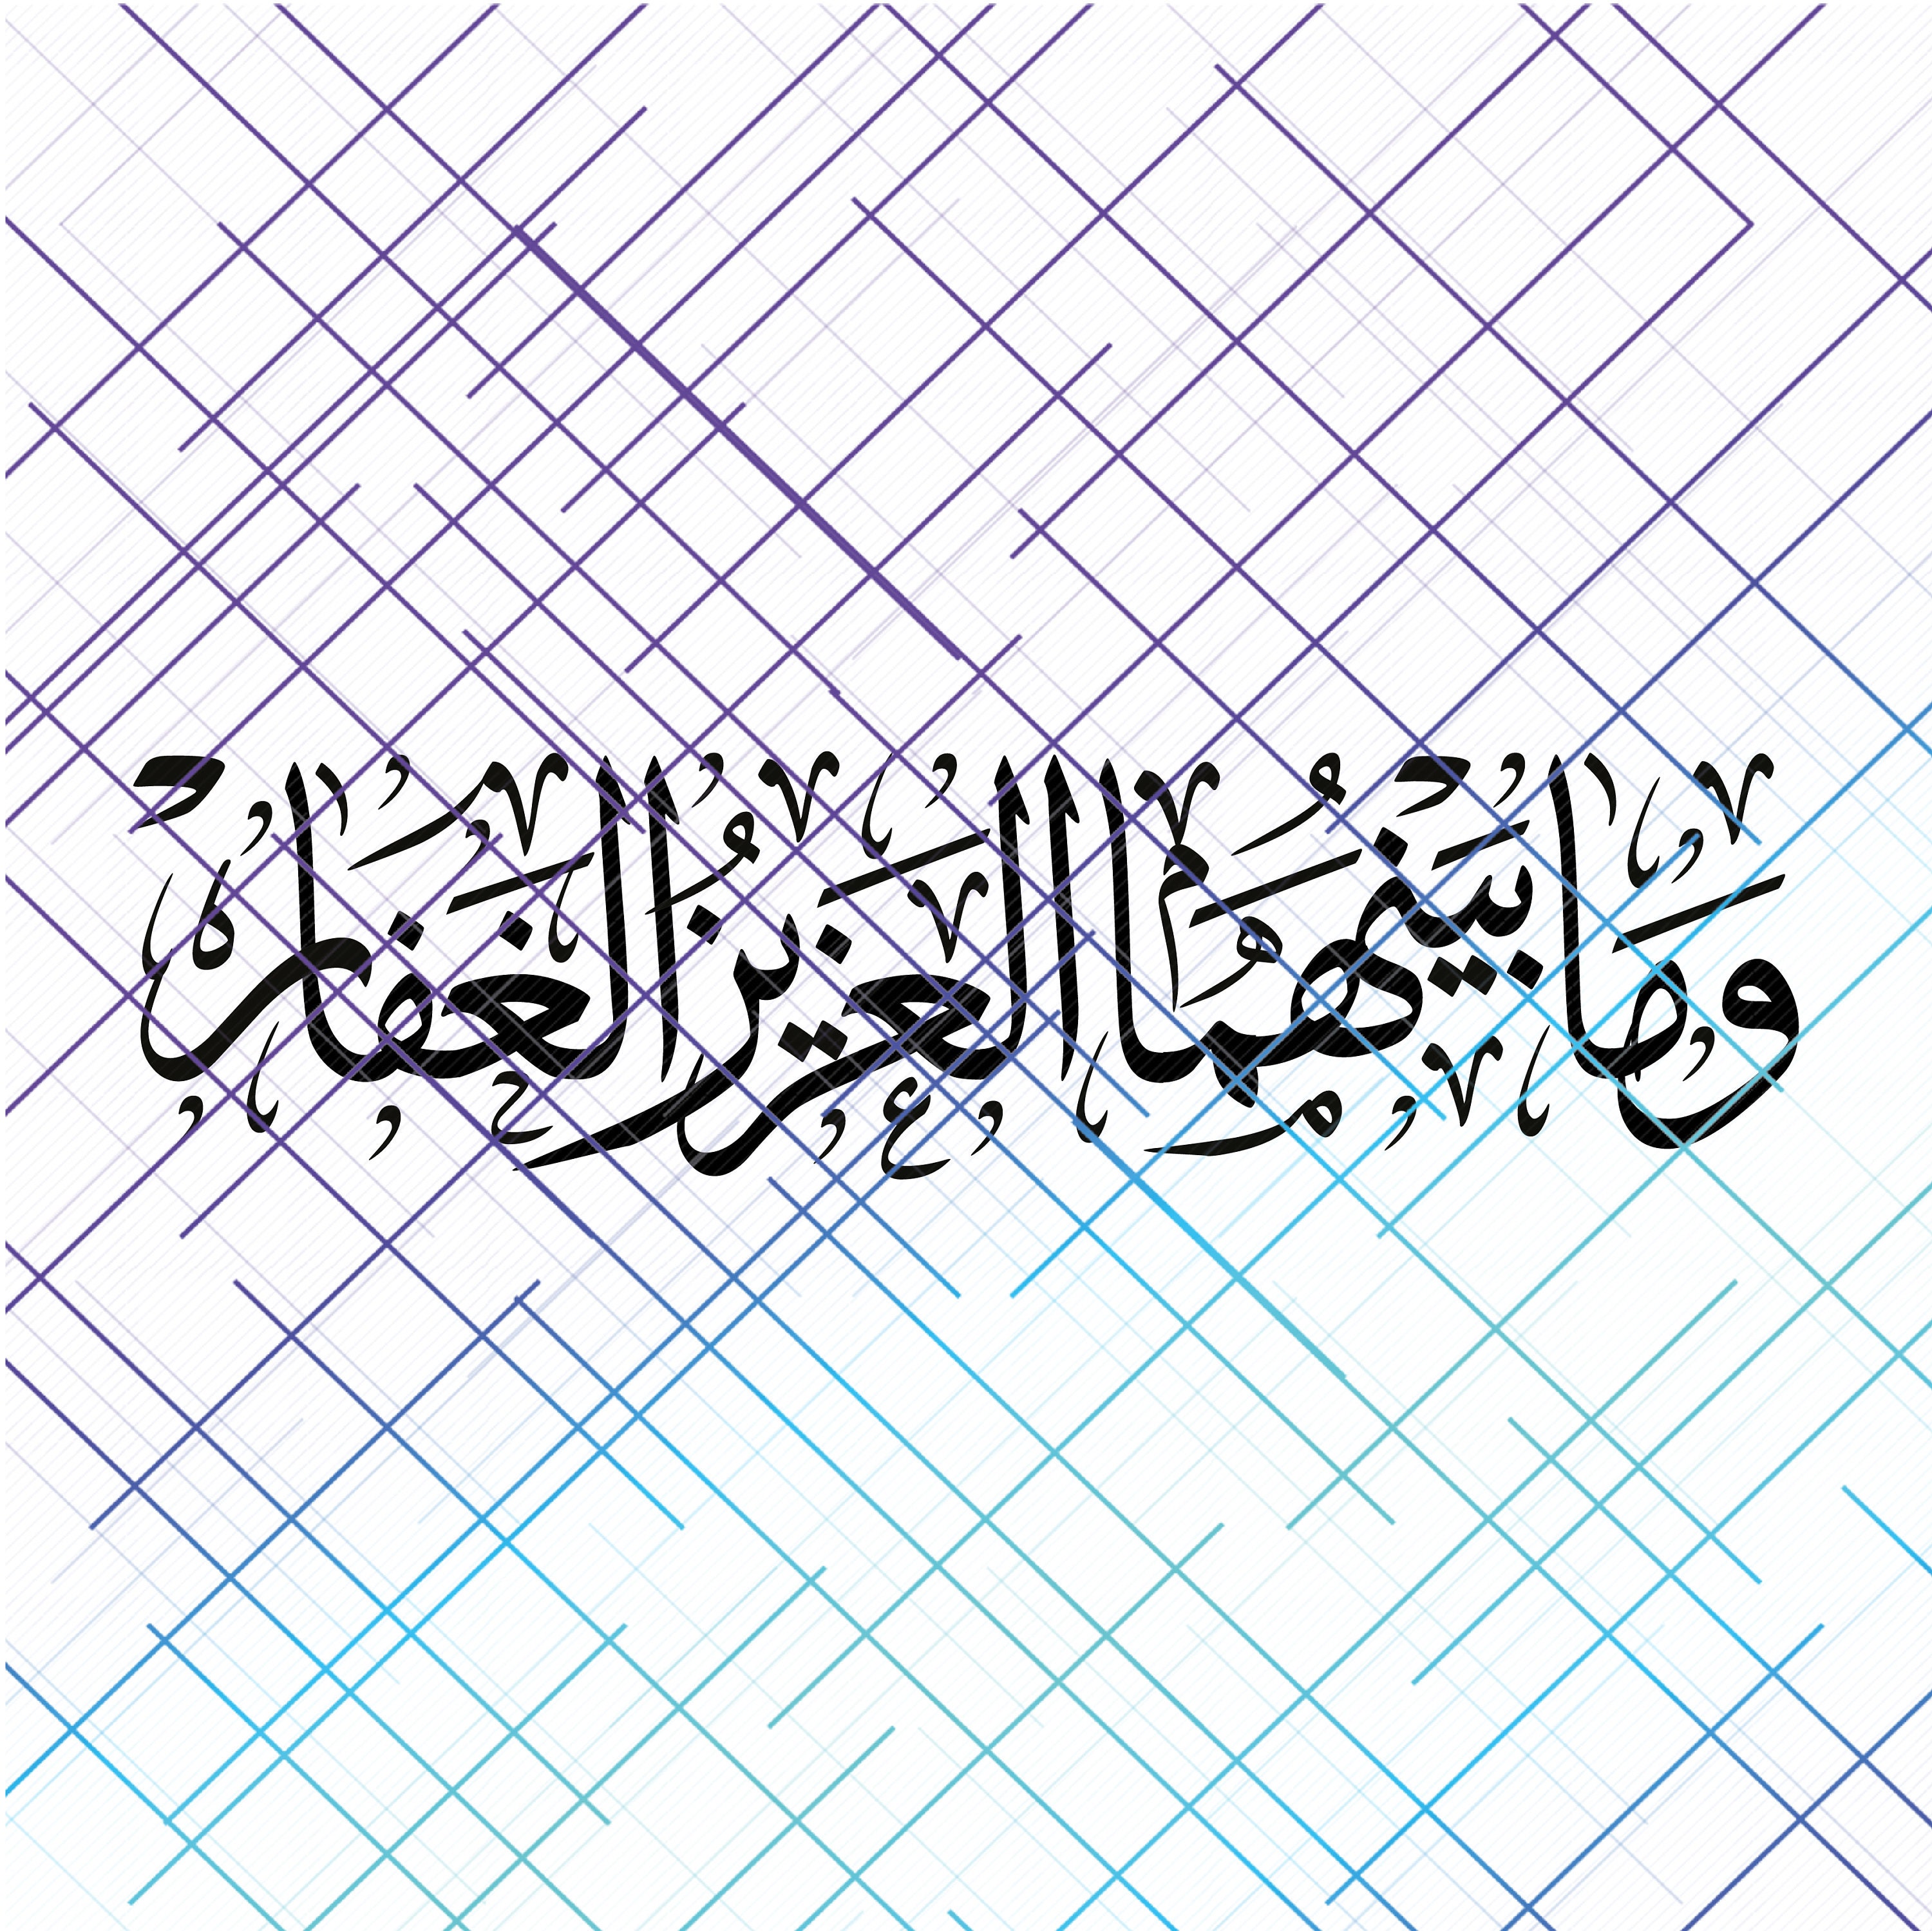 وَمَا بَيْنَهُمَا الْعَزِيزُ الْغَفَّارُ